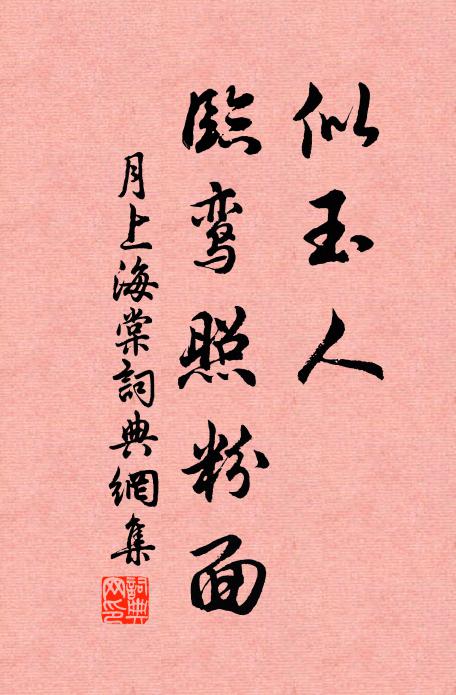 似玉人
臨鸾照粉面
月上海棠詞典網集
詞典网印